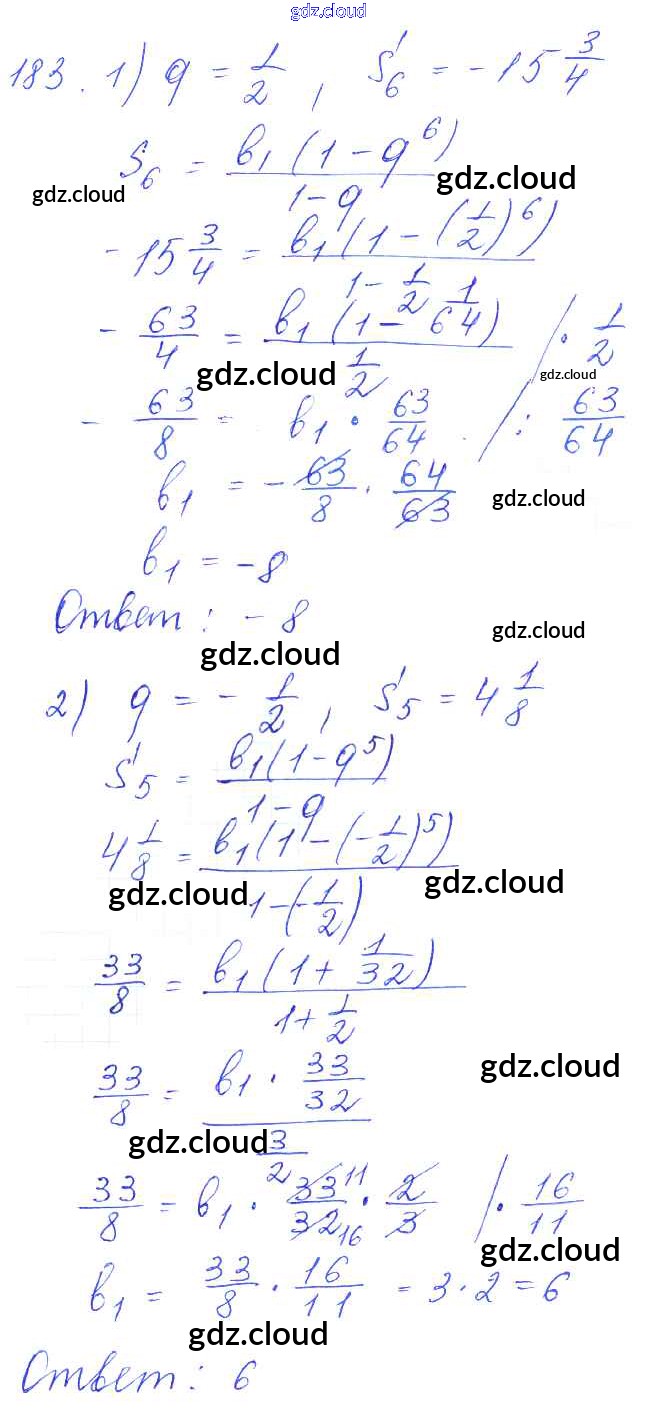 gdz.cloud
183. 1) q = 1/2, S₆ = -15 3/4
S₆ = b₁(1 - q⁶) / 1 - q
gdz.cloud gdz.cloud
-15 3/4 = b₁(1 - (1/2)⁶) / 1 - 1/2
- 63/4 = b₁(1 - 1/64) / 1/2 /· 1/2
gdz.cloud gdz.cloud
- 63/8 = b₁ · 63/64 /: 63/64
b₁ = - 63/8 · 64/63
gdz.cloud
b₁ = -8
Ответ: -8
gdz.cloud
gdz.cloud
2) q = - 1/2, S₅ = 4 1/8
S₅ = b₁(1 - q⁵) / 1 - q
4 1/8 = b₁(1 - (-1/2)⁵) / 1 - (-1/2)
gdz.cloud gdz.cloud
33/8 = b₁(1 + 1/32) / 1 + 1/2
33/8 = b₁ · 33/32 / 3/2
gdz.cloud
gdz.cloud
33/8 = b₁ · 33 11/32 16 · 2/3 /· 16/11
gdz.cloud
b₁ = 33/8 · 16/11 = 3 · 2 = 6
gdz.cloud
Ответ: 6